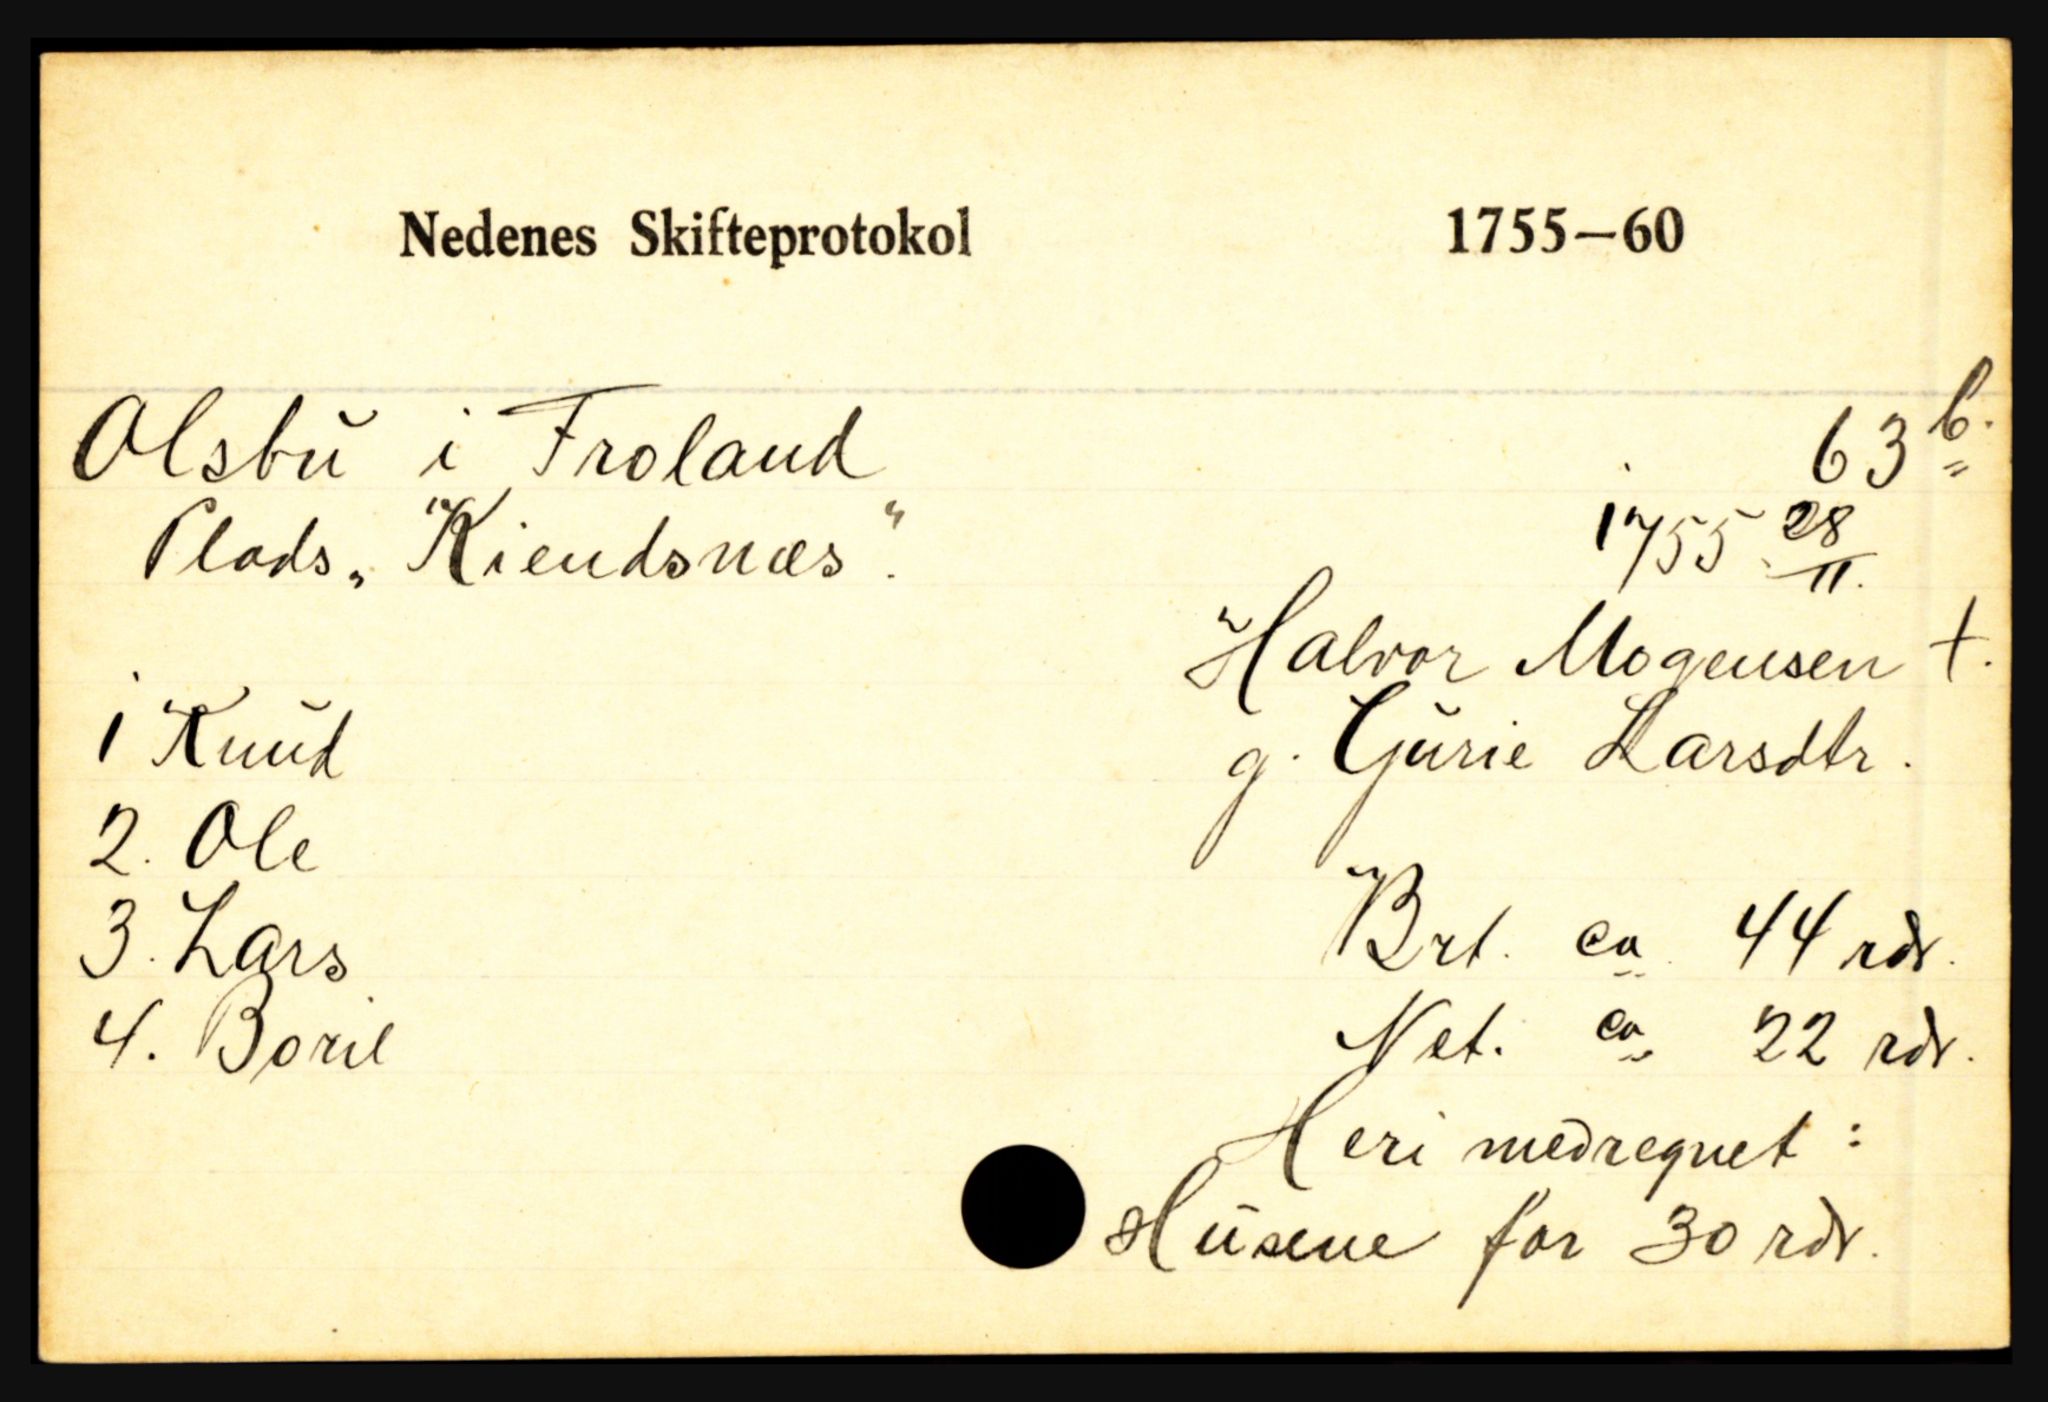 Nedenes Skifteprotokol 1755—60
Olsbu i Froland 63 b.
Plads „Kiendsnæs“. 1755 28/11.
Halvor Mogensen †.
1 Knud g. Gurie Larsdtr.
2. Ole
3. Lars Brt. ca 44 rdr.
4. Boril Net. ca 22 rdr.
Heri medregnet:
Husene for 30 rdr.